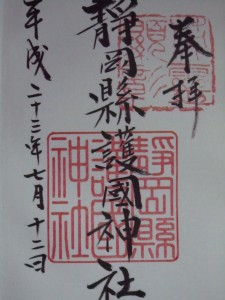 奉拝
靜岡縣護國神社
平成二十三年七月十二日
靜岡縣
護國
神社